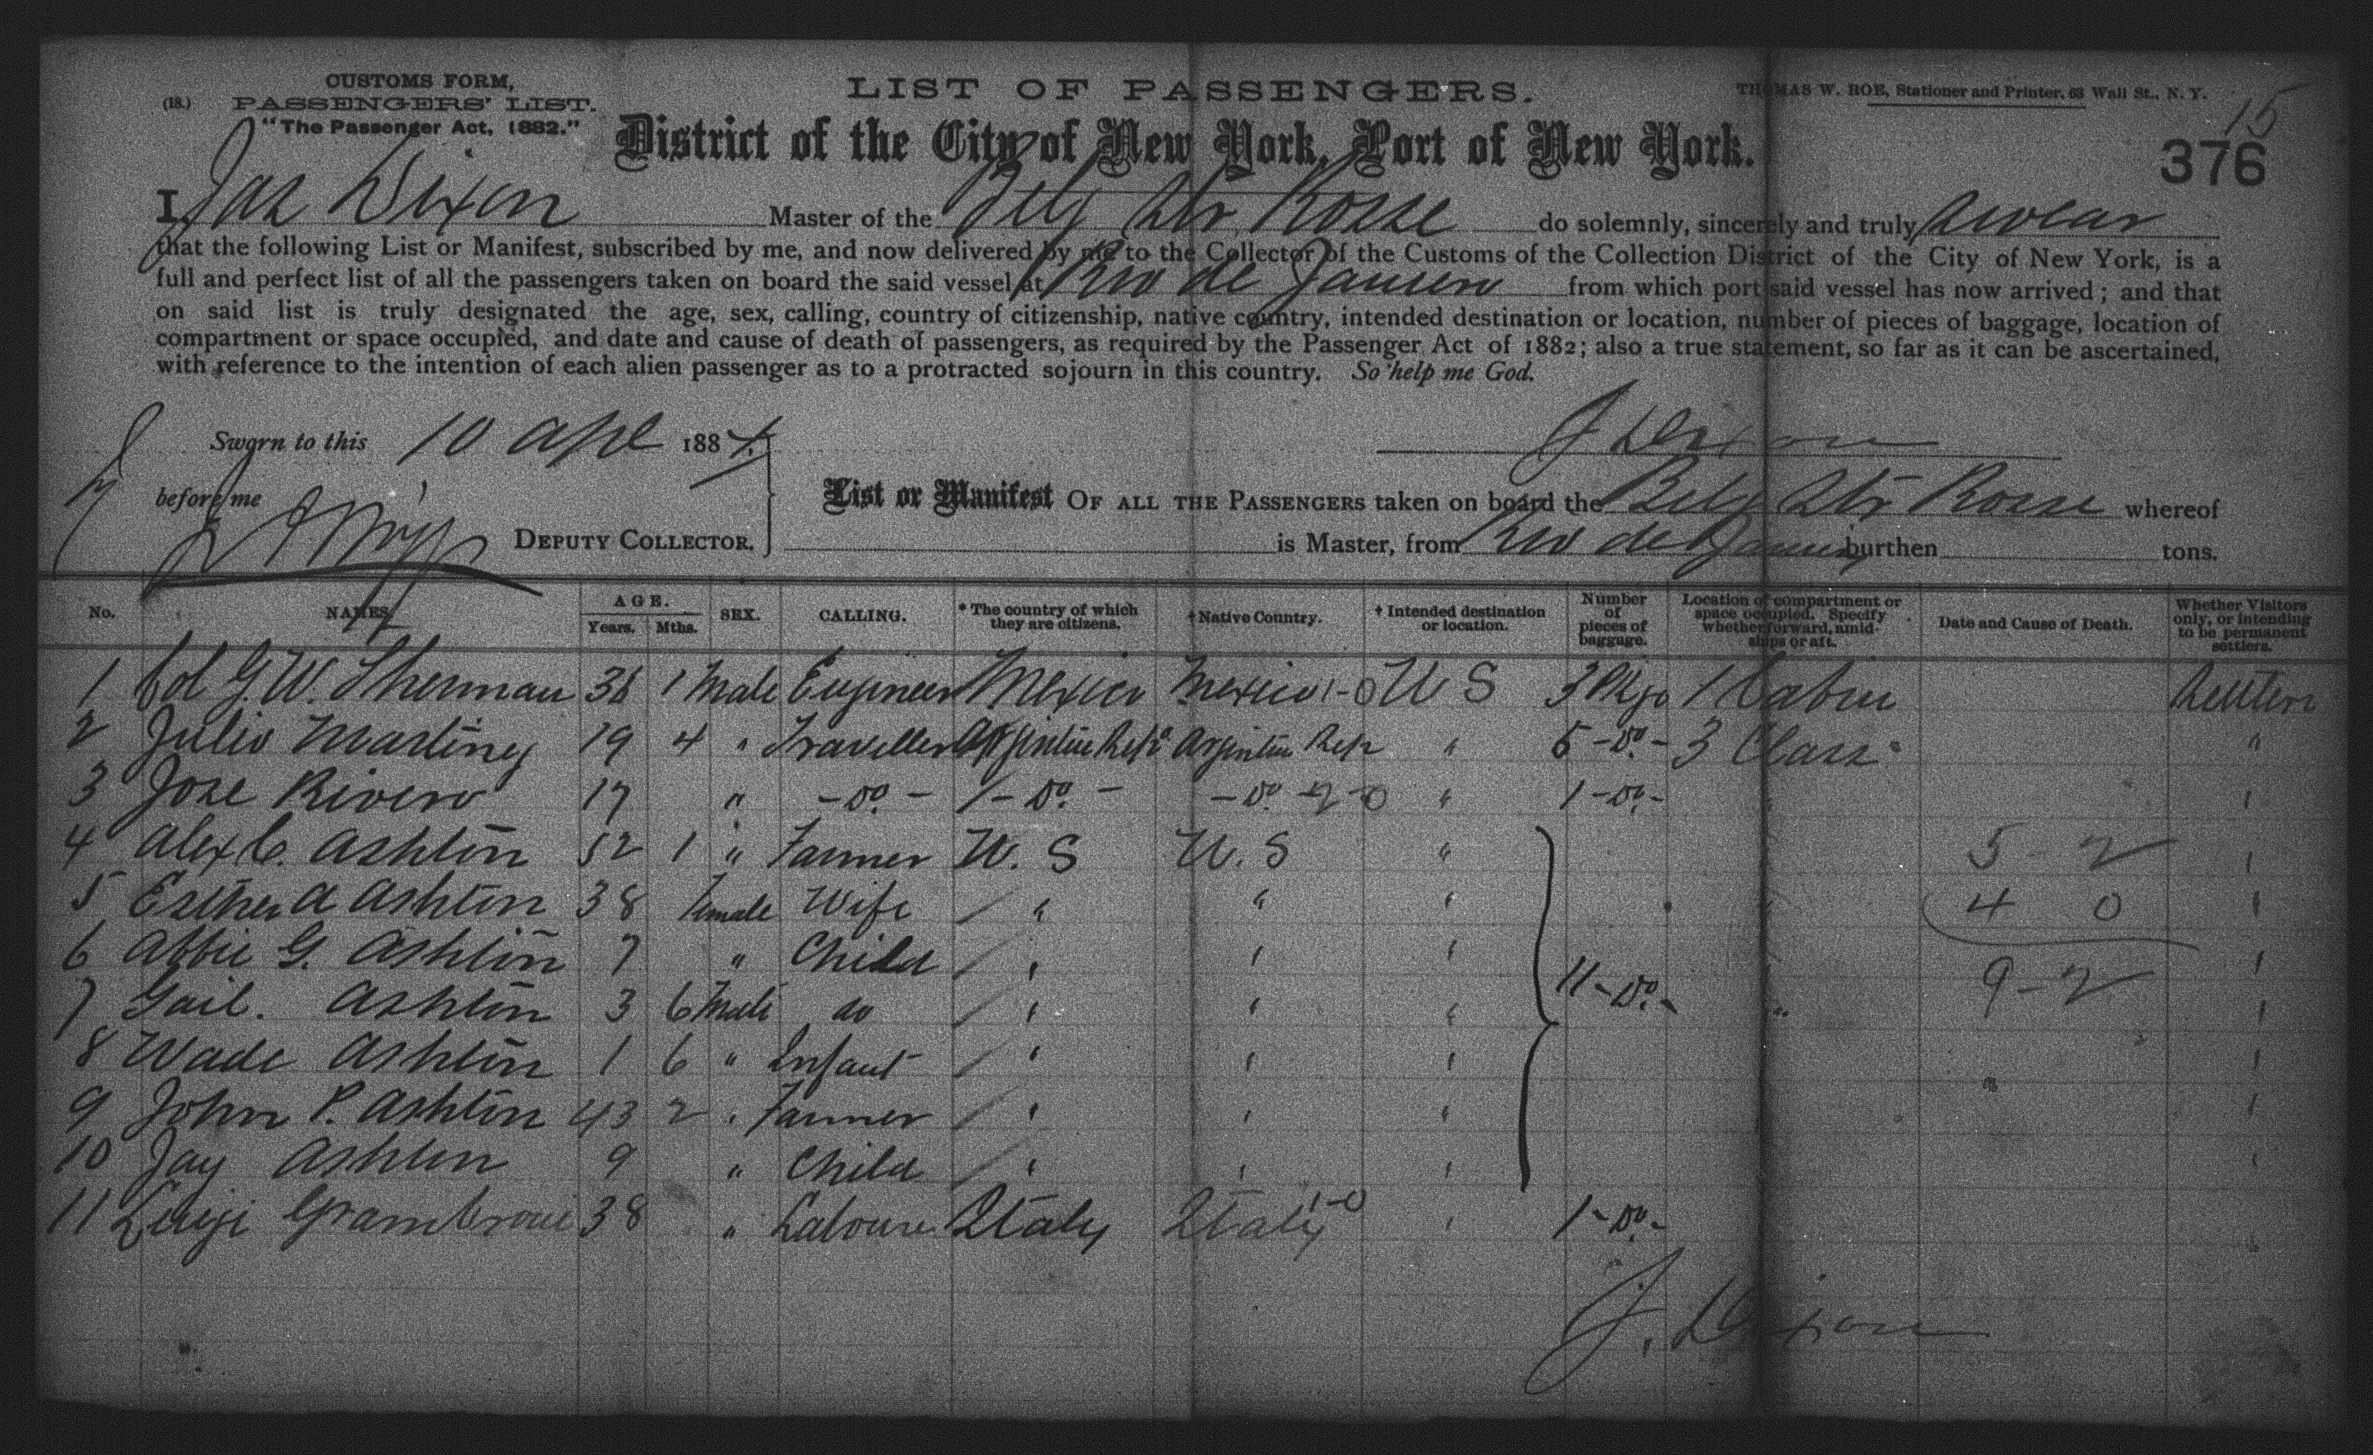 CUSTOMS FORM,
(18.) PASSENGERS' LIST.
"The Passenger Act, 1882."
LIST OF PASSENGERS.
THOMAS W. ROE, Stationer and Printer, 63 Wall St., N. Y.
15
District of the City of New York, Port of New York.
376
I, Jas Dixon Master of the Belg Str Rosse do solemnly, sincerely and truly swear
that the following List or Manifest, subscribed by me, and now delivered by me to the Collector of the Customs of the Collection District of the City of New York, is a
full and perfect list of all the passengers taken on board the said vessel at Rio de Janeiro from which port said vessel has now arrived; and that
on said list is truly designated the age, sex, calling, country of citizenship, native country, intended destination or location, number of pieces of baggage, location of
compartment or space occupied, and date and cause of death of passengers, as required by the Passenger Act of 1882; also a true statement, so far as it can be ascertained,
with reference to the intention of each alien passenger as to a protracted sojourn in this country. So help me God.
Sworn to this 10 apl 1884. J Dixon
before me DEPUTY COLLECTOR.
List or Manifest OF ALL THE PASSENGERS taken on board the Belg Str Rosse whereof
is Master, from Rio de Janeiro burthen tons.
No. NAMES. AGE. Years. Mths. SEX. CALLING. * The country of which they are citizens. † Native Country. † Intended destination or location. Number of pieces of baggage. Location of compartment or space occupied. Specify whether forward, amidships or aft. Date and Cause of Death. Whether Visitors only, or intending to be permanent settlers.
1 Col G. W. Sherman 36 1 Male Engineer Mexico Mexico 1-0 U S 3 Pkgs 1 Cabin Settlers
2 Julio Martiney 19 4 " Traveller Argintine Rep Argintine Rep " 5 -Do- 3 Class "
3 Jose Rivero 17 " -Do- -Do- -Do- 2-0 " 1 -Do- "
4 Alex C. Ashton 52 1 " Farmer U. S U. S " 5-2 "
5 Esther A Ashton 38 Female Wife " " " 4 0 "
6 Abbie G. Ashton 7 " Child " " " 9-2 "
7 Gail. Ashton 3 6 Male do " " " 11 -Do- " "
8 Wade Ashton 1 6 " Infant " " " "
9 John P. Ashton 43 2 " Farmer " " " "
10 Jay Ashton 9 " Child " " " "
11 Luigi 38 " Laboure Italy Italy 1-0 " 1 -Do- "
J. Dixon